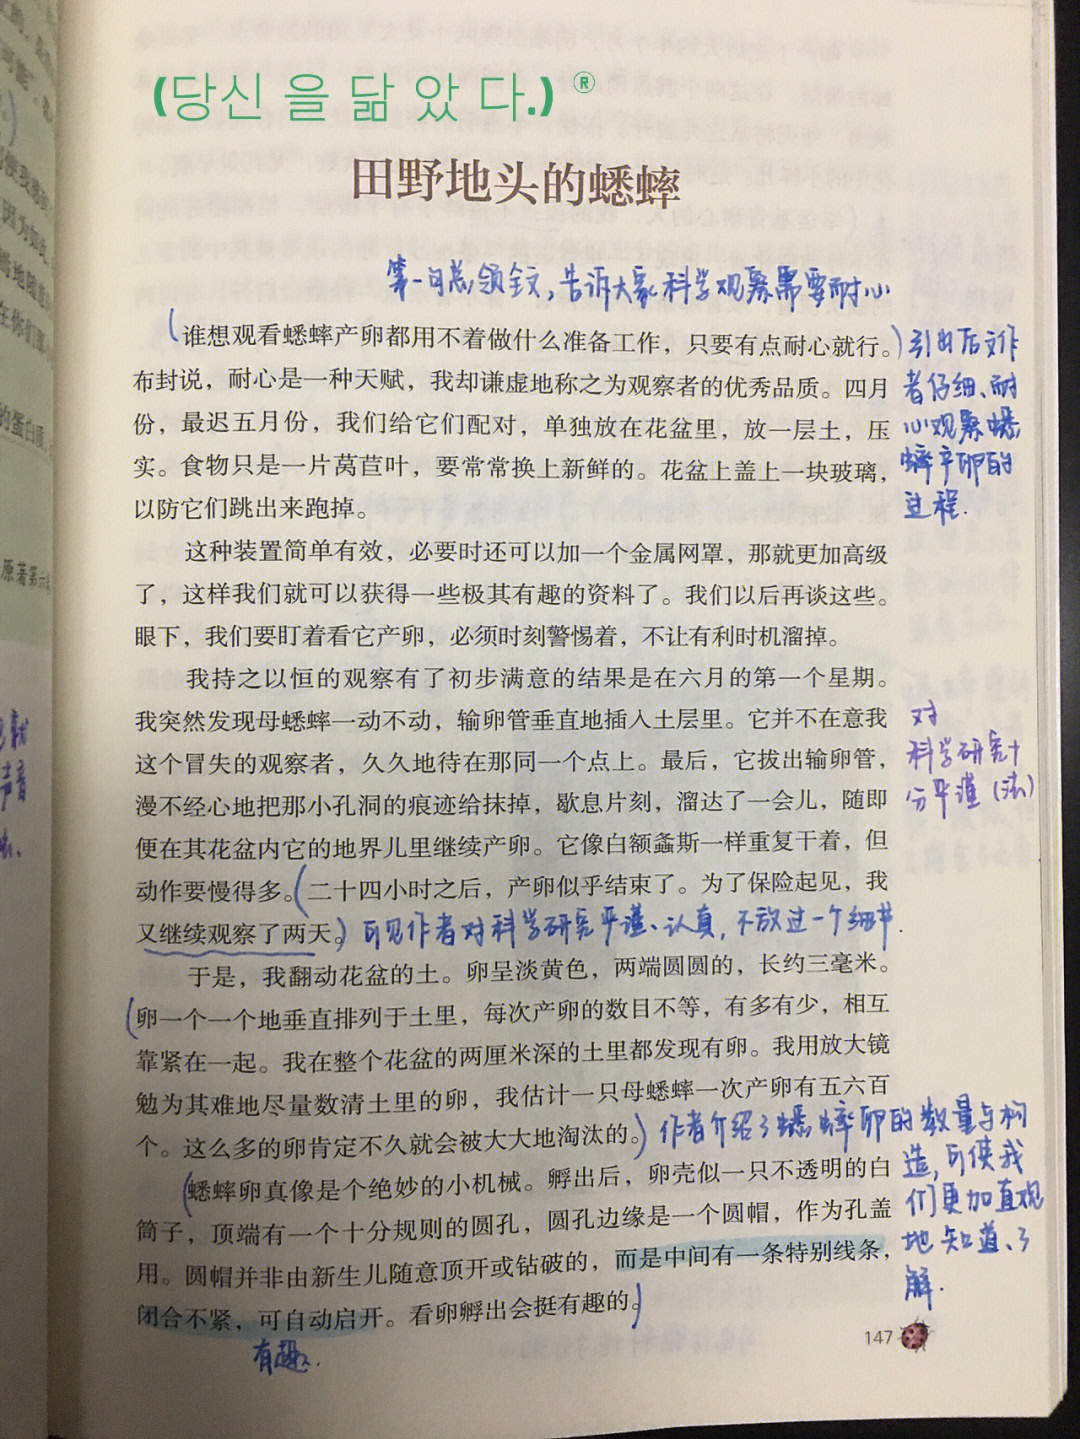 (당신 을 닮 았 다.) ®
田野地头的蟋蟀
第一句总领全文，告诉大家科学观察需要耐心
谁想观看蟋蟀产卵都用不着做什么准备工作，只要有点耐心就行。
布封说，耐心是一种天赋，我却谦虚地称之为观察者的优秀品质。四月
份，最迟五月份，我们给它们配对，单独放在花盆里，放一层土，压
实。食物只是一片莴苣叶，要常常换上新鲜的。花盆上盖上一块玻璃，
以防它们跳出来跑掉。
引出后文作
者仔细、耐
心观察蟋
蟀产卵的
过程.
这种装置简单有效，必要时还可以加一个金属网罩，那就更加高级
了，这样我们就可以获得一些极其有趣的资料了。我们以后再谈这些。
眼下，我们要盯着看它产卵，必须时刻警惕着，不让有利时机溜掉。
我持之以恒的观察有了初步满意的结果是在六月的第一个星期。
我突然发现母蟋蟀一动不动，输卵管垂直地插入土层里。它并不在意我
这个冒失的观察者，久久地待在那同一个点上。最后，它拔出输卵管，
漫不经心地把那小孔洞的痕迹给抹掉，歇息片刻，溜达了一会儿，随即
便在其花盆内它的地界儿里继续产卵。它像白额螽斯一样重复干着，但
动作要慢得多。(二十四小时之后，产卵似乎结束了。为了保险起见，我
又继续观察了两天。)可见作者对科学研究严谨、认真，不放过一个细节.
对
科学研究十
分严谨（法）
于是，我翻动花盆的土。卵呈淡黄色，两端圆圆的，长约三毫米。
(卵一个一个地垂直排列于土里，每次产卵的数目不等，有多有少，相互
靠紧在一起。我在整个花盆的两厘米深的土里都发现有卵。我用放大镜
勉为其难地尽量数清土里的卵，我估计一只母蟋蟀一次产卵有五六百
个。这么多的卵肯定不久就会被大大地淘汰的。)作者介绍了蟋蟀卵的数量与构
造，可使我
们更加直观
地知道、了
解.
(蟋蟀卵真像是个绝妙的小机械。孵出后，卵壳似一只不透明的白
筒子，顶端有一个十分规则的圆孔，圆孔边缘是一个圆帽，作为孔盖
用。圆帽并非由新生儿随意顶开或钻破的，而是中间有一条特别线条，
闭合不紧，可自动启开。看卵孵出会挺有趣的。)
有趣.
147